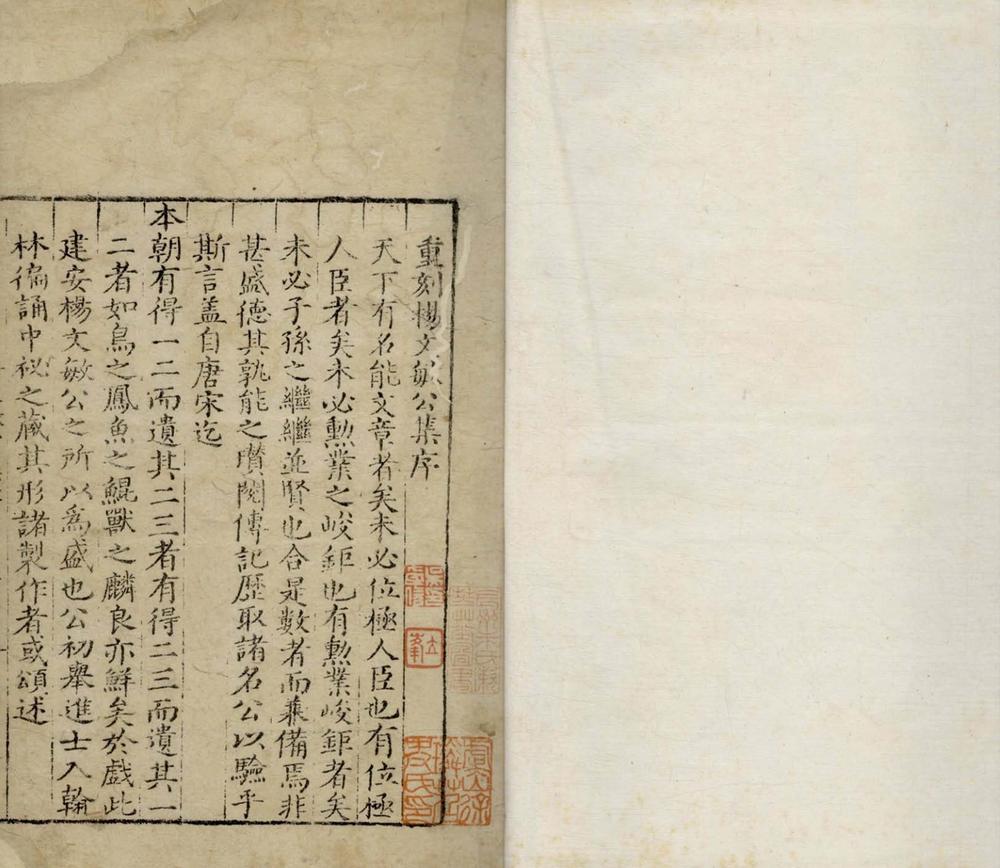 重刻楊文敏公集序
天下有名能文章者矣未必位極人臣也有位極
人臣者矣未必勲業之峻鉅也有勲業峻鉅者矣
未必子孫之繼繼並賢也合是數者而兼備焉非
甚盛德其孰能之嘖閱傳記歷取諸名公以驗乎
斯言盖自唐宋迄
本朝有得一二而遺其二三者有得二三而遺其一
二者如鳥之鳳魚之鯤獸之麟良亦鮮矣於戲此
建安楊文敏公之所以為盛也公初舉進士入翰
林徧誦中祕之藏其形諸製作者或頌述